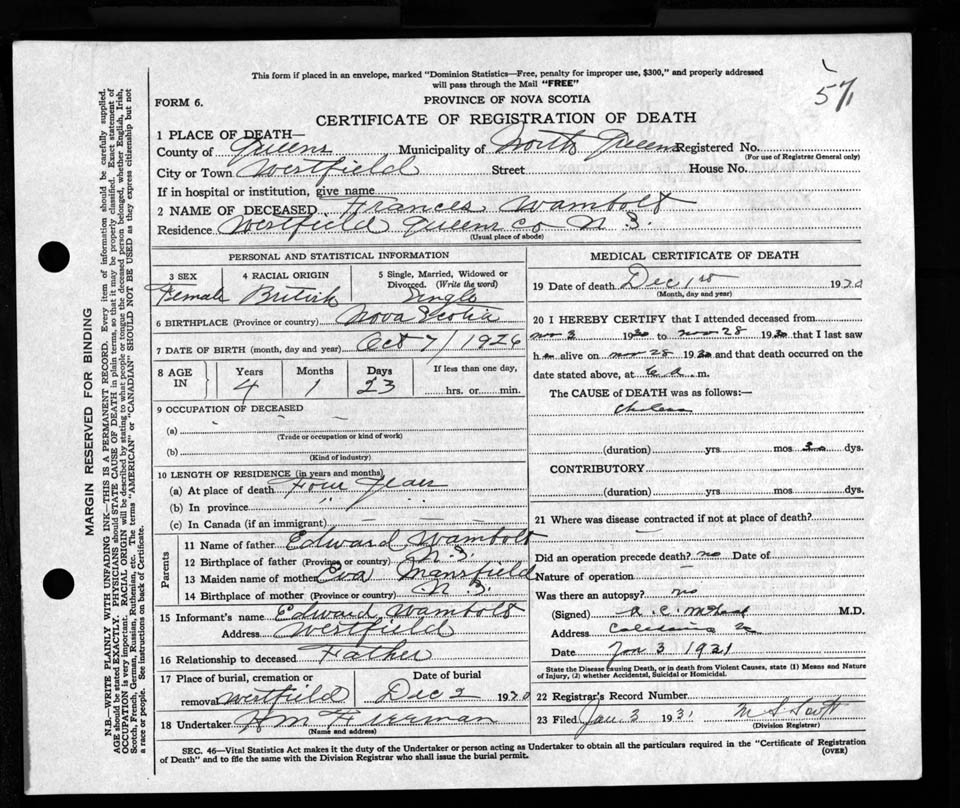 This form if placed in an envelope, marked "Dominion Statistics—Free, penalty for improper use, $300," and properly addressed
will pass through the Mail "FREE"
57
FORM 6.
PROVINCE OF NOVA SCOTIA
CERTIFICATE OF REGISTRATION OF DEATH
1 PLACE OF DEATH—
County of Queens Municipality of North Queens Registered No.
(For use of Registrar General only)
City or Town Westfield Street House No.
If in hospital or institution, give name
2 NAME OF DECEASED Frances Wambolt
Residence Westfield Queens Co N S.
(Usual place of abode)
PERSONAL AND STATISTICAL INFORMATION
3 SEX 4 RACIAL ORIGIN 5 Single, Married, Widowed or Divorced. (Write the word)
Female British Single
6 BIRTHPLACE (Province or country) Nova Scotia
7 DATE OF BIRTH (month, day and year) Oct 7/1926
8 AGE IN Years Months Days If less than one day,
4 1 23 hrs. or min.
9 OCCUPATION OF DECEASED
(a) -
(Trade or occupation or kind of work)
(b)
(Kind of industry)
10 LENGTH OF RESIDENCE (in years and months)
(a) At place of death Four Years
(b) In province " "
(c) In Canada (if an immigrant) — —
Parents
11 Name of father Edward Wambolt
12 Birthplace of father (Province or country) N. S.
13 Maiden name of mother Eva Mansfield
14 Birthplace of mother (Province or country) N S.
15 Informant's name Edward Wambolt
Address Westfield
16 Relationship to deceased Father
17 Place of burial, cremation or removal Westfield Date of burial Dec 2 1930
18 Undertaker H M Freeman
(Name and address)
MEDICAL CERTIFICATE OF DEATH
19 Date of death Dec 1st 1930
(Month, day and year)
20 I HEREBY CERTIFY that I attended deceased from
Nov 3 1930 to Nov 28 1930 that I last saw
h alive on Nov 28 1930 and that death occurred on the
date stated above, at 6 a. m.
The CAUSE of DEATH was as follows:—
(duration) yrs mos 30 dys.
CONTRIBUTORY
(duration) yrs mos dys.
21 Where was disease contracted if not at place of death?
—
Did an operation precede death? no Date of
Nature of operation —
Was there an autopsy? no
(Signed) M.D.
Address
Date Jan 3 1931
State the Disease Causing Death, or in death from Violent Causes, state (1) Means and Nature
of Injury, (2) whether Accidental, Suicidal or Homicidal.
22 Registrar's Record Number
23 Filed Jan 3 1931 M S Scott
(Division Registrar)
SEC. 46—Vital Statistics Act makes it the duty of the Undertaker or person acting as Undertaker to obtain all the particulars required in the "Certificate of Registration
of Death" and to file the same with the Division Registrar who shall issue the burial permit.
(OVER)
MARGIN RESERVED FOR BINDING
N.B.—WRITE PLAINLY WITH UNFADING INK—THIS IS A PERMANENT RECORD. Every item of information should be carefully supplied.
AGE should be stated EXACTLY. PHYSICIANS should STATE CAUSE OF DEATH in plain terms, so that it may be properly classified. Exact statement of
OCCUPATION is very important. RACIAL ORIGIN will be described by stating to what people or tongue the deceased person belonged, whether English, Irish,
Scotch, French, German, Russian, Ruthenian, etc. The terms "AMERICAN" or "CANADIAN" SHOULD NOT BE USED as they express citizenship but not
a race or people. See instructions on back of Certificate.